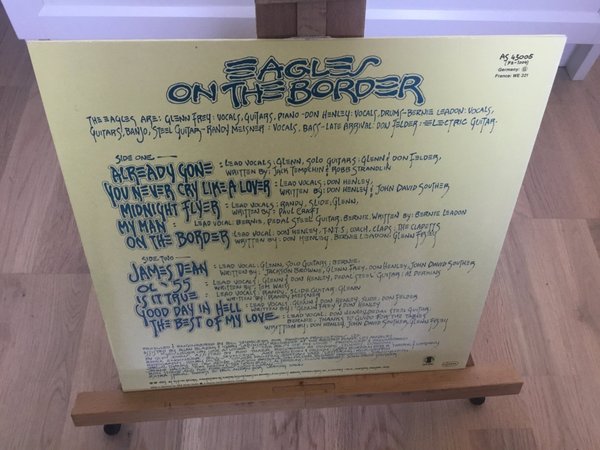 EAGLES
ON THE BORDER
AS 43005
(7E-1004)
Germany:
France: WE 321
THE EAGLES ARE: GLENN FREY: VOCALS, GUITARS, PIANO - DON HENLEY: VOCALS, DRUMS - BERNIE LEADON: VOCALS,
GUITARS, BANJO, STEEL GUITAR - RANDY MEISNER: VOCALS, BASS - LATE ARRIVAL: DON FELDER: ELECTRIC GUITAR.
SIDE ONE
ALREADY GONE : LEAD VOCALS: GLENN, SOLO GUITARS: GLENN & DON FELDER,
WRITTEN BY: JACK TEMPCHIN & ROBB STRANDLIN
YOU NEVER CRY LIKE A LOVER : LEAD VOCALS: DON HENLEY,
WRITTEN BY: DON HENLEY & JOHN DAVID SOUTHER
MIDNIGHT FLYER : LEAD VOCALS: RANDY, SLIDE, GLENN,
WRITTEN BY: PAUL CRAFT
MY MAN : LEAD VOCAL: BERNIE, PEDAL STEEL GUITAR: BERNIE. WRITTEN BY: BERNIE LEADON
ON THE BORDER : LEAD VOCAL: DON HENLEY, T.N.T.S, COACH, CLAPS: THE CLAPETTS
WRITTEN BY: DON HENLEY, BERNIE LEADON, GLENN FREY
SIDE TWO
JAMES DEAN : LEAD VOCAL: GLENN, SOLO GUITARS: BERNIE,
WRITTEN BY: JACKSON BROWNE, GLENN FREY, DON HENLEY, JOHN DAVID SOUTHER
OL' 55 : LEAD VOCALS: GLENN & DON HENLEY, PEDAL STEEL GUITAR: AL PERKINS
WRITTEN BY: TOM WAITS
IS IT TRUE : LEAD VOCALS: RANDY, SLIDE GUITAR: GLENN
WRITTEN BY: RANDY MEISNER
GOOD DAY IN HELL : LEAD VOCALS: GLENN & DON HENLEY, SLIDE: DON FELDER
WRITTEN BY: GLENN FREY & DON HENLEY
THE BEST OF MY LOVE : LEAD VOCAL: DON HENLEY, PEDAL STEEL GUITAR:
BERNIE, THANKS TO GUIDO FOR THE
WRITTEN BY: DON HENLEY, JOHN DAVID SOUTHER, GLENN FREY